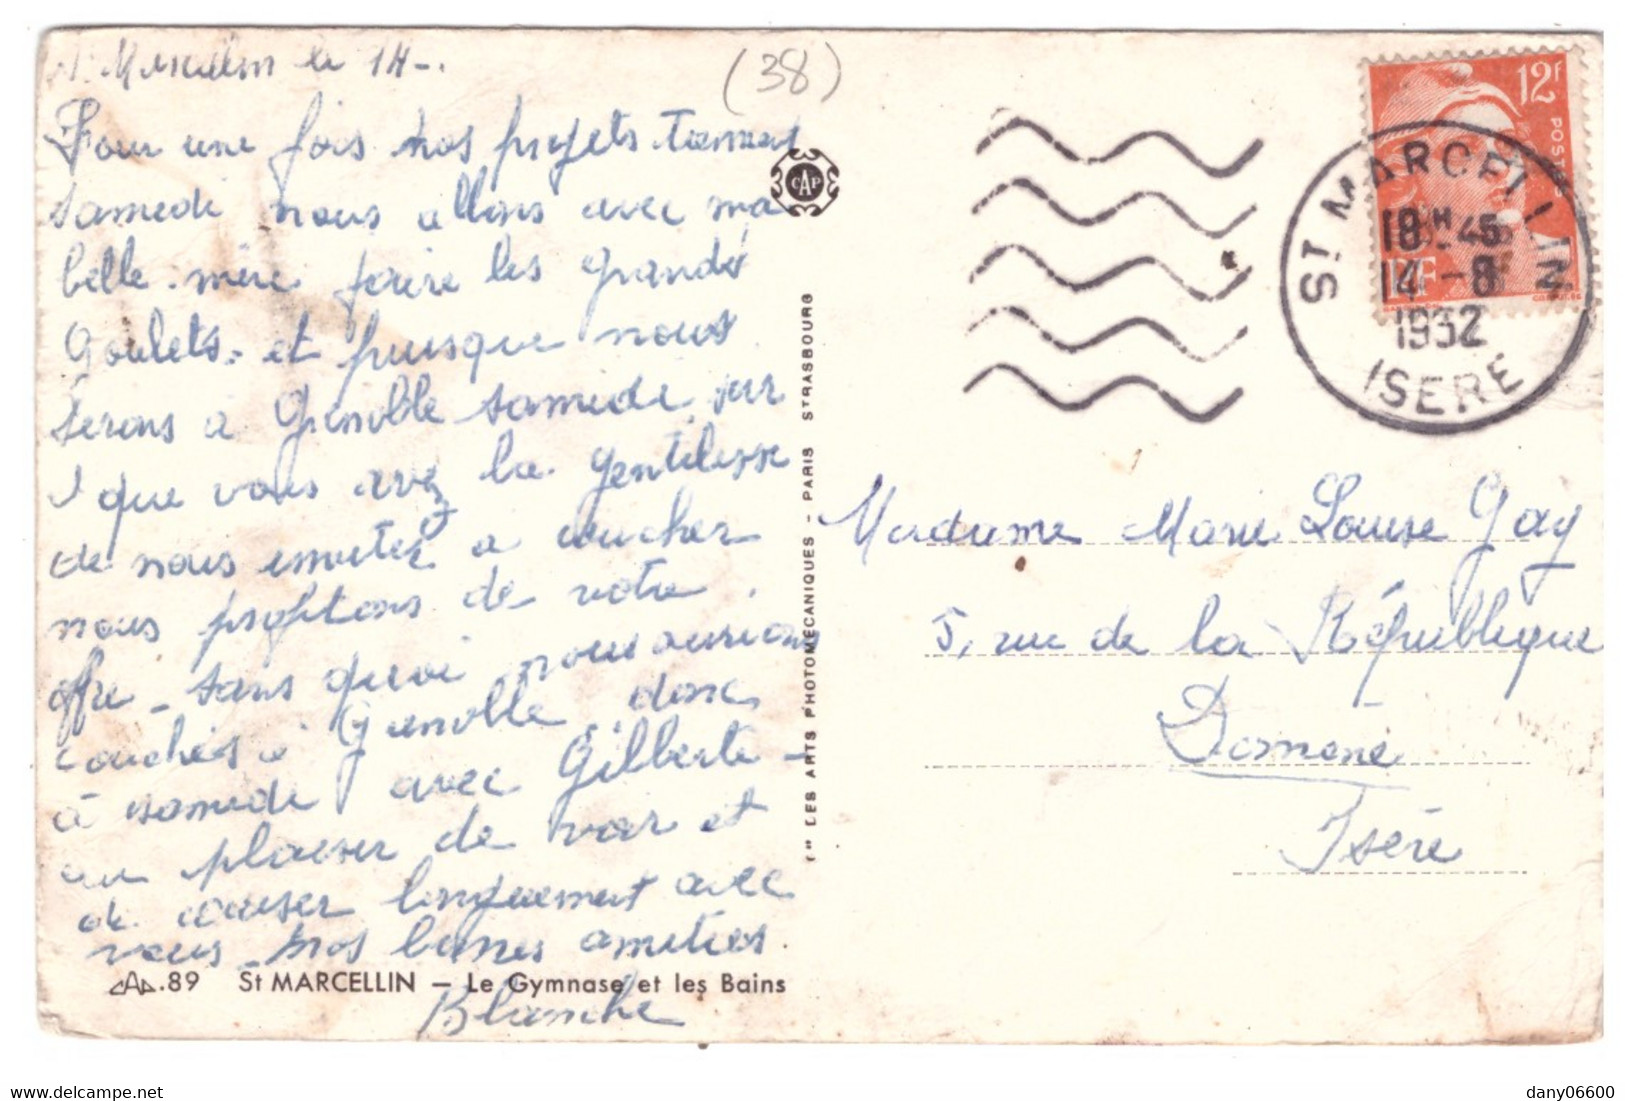 St Marcellin le 14 -.
(38)
Pour une fois nos projets tiennent
samedi nous allons avec ma
belle-mère faire les grands
Goulets - et puisque nous
serons à Grenoble samedi soir
que vous avez la gentillesse
de nous inviter a coucher
nous profitons de votre
offre - sans quoi nous aurions
couchés à Grenoble donc
à samedi avec Gilberte -
au plaisir de voir et
de causer longuement avec
vous - nos bonnes amitiés
Blanche
.89 St MARCELLIN - Le Gymnase et les Bains
CAP
Cie LES ARTS PHOTOMECANIQUES - PARIS STRASBOURG
12F
POSTES
RF
ST MARCELLIN
18H45
14 -8
1952
ISERE
Madame Marie Louise Gay
5, rue de la République
Domène
Isère
www.delcampe.net
dany06600